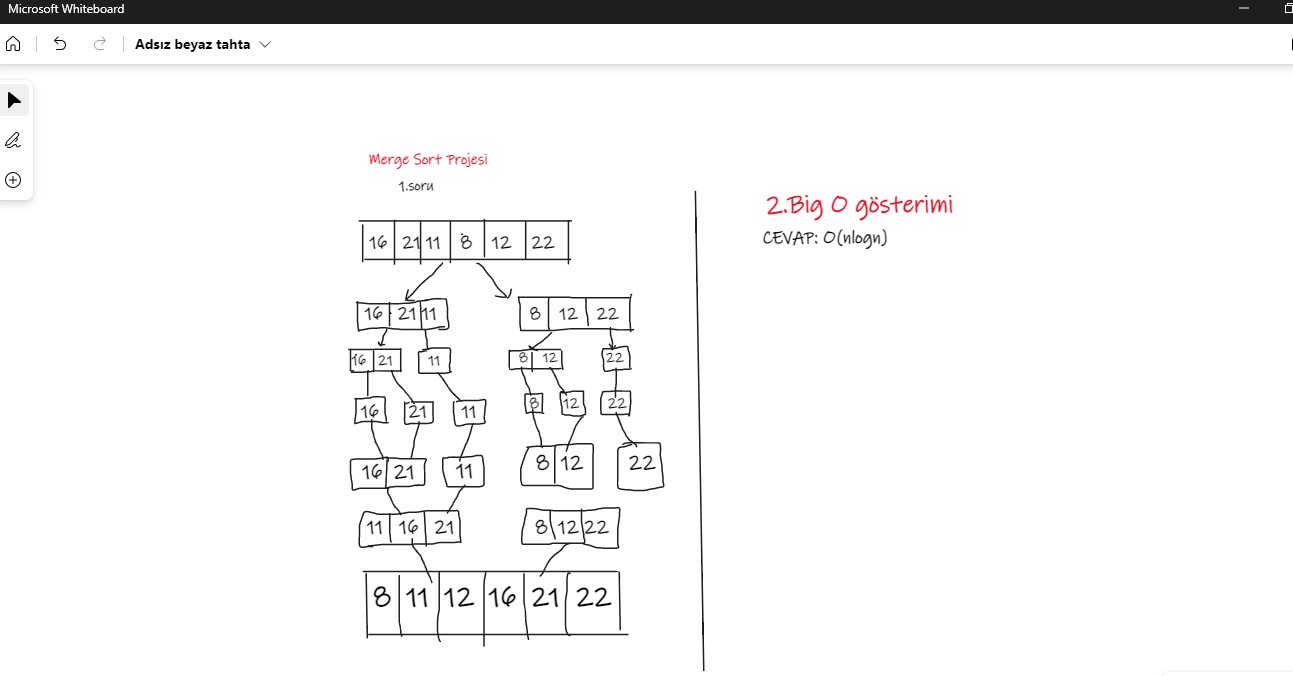 Microsoft Whiteboard
Adsız beyaz tahta
Merge Sort Projesi
1.soru
16 21 11 8 12 22
16 21 11 8 12 22
16 21 11 8 12 22
16 21 11 8 12 22
16 21 11 8 12 22
11 16 21 8 12 22
8 11 12 16 21 22
2.Big O gösterimi
CEVAP: O(nlogn)